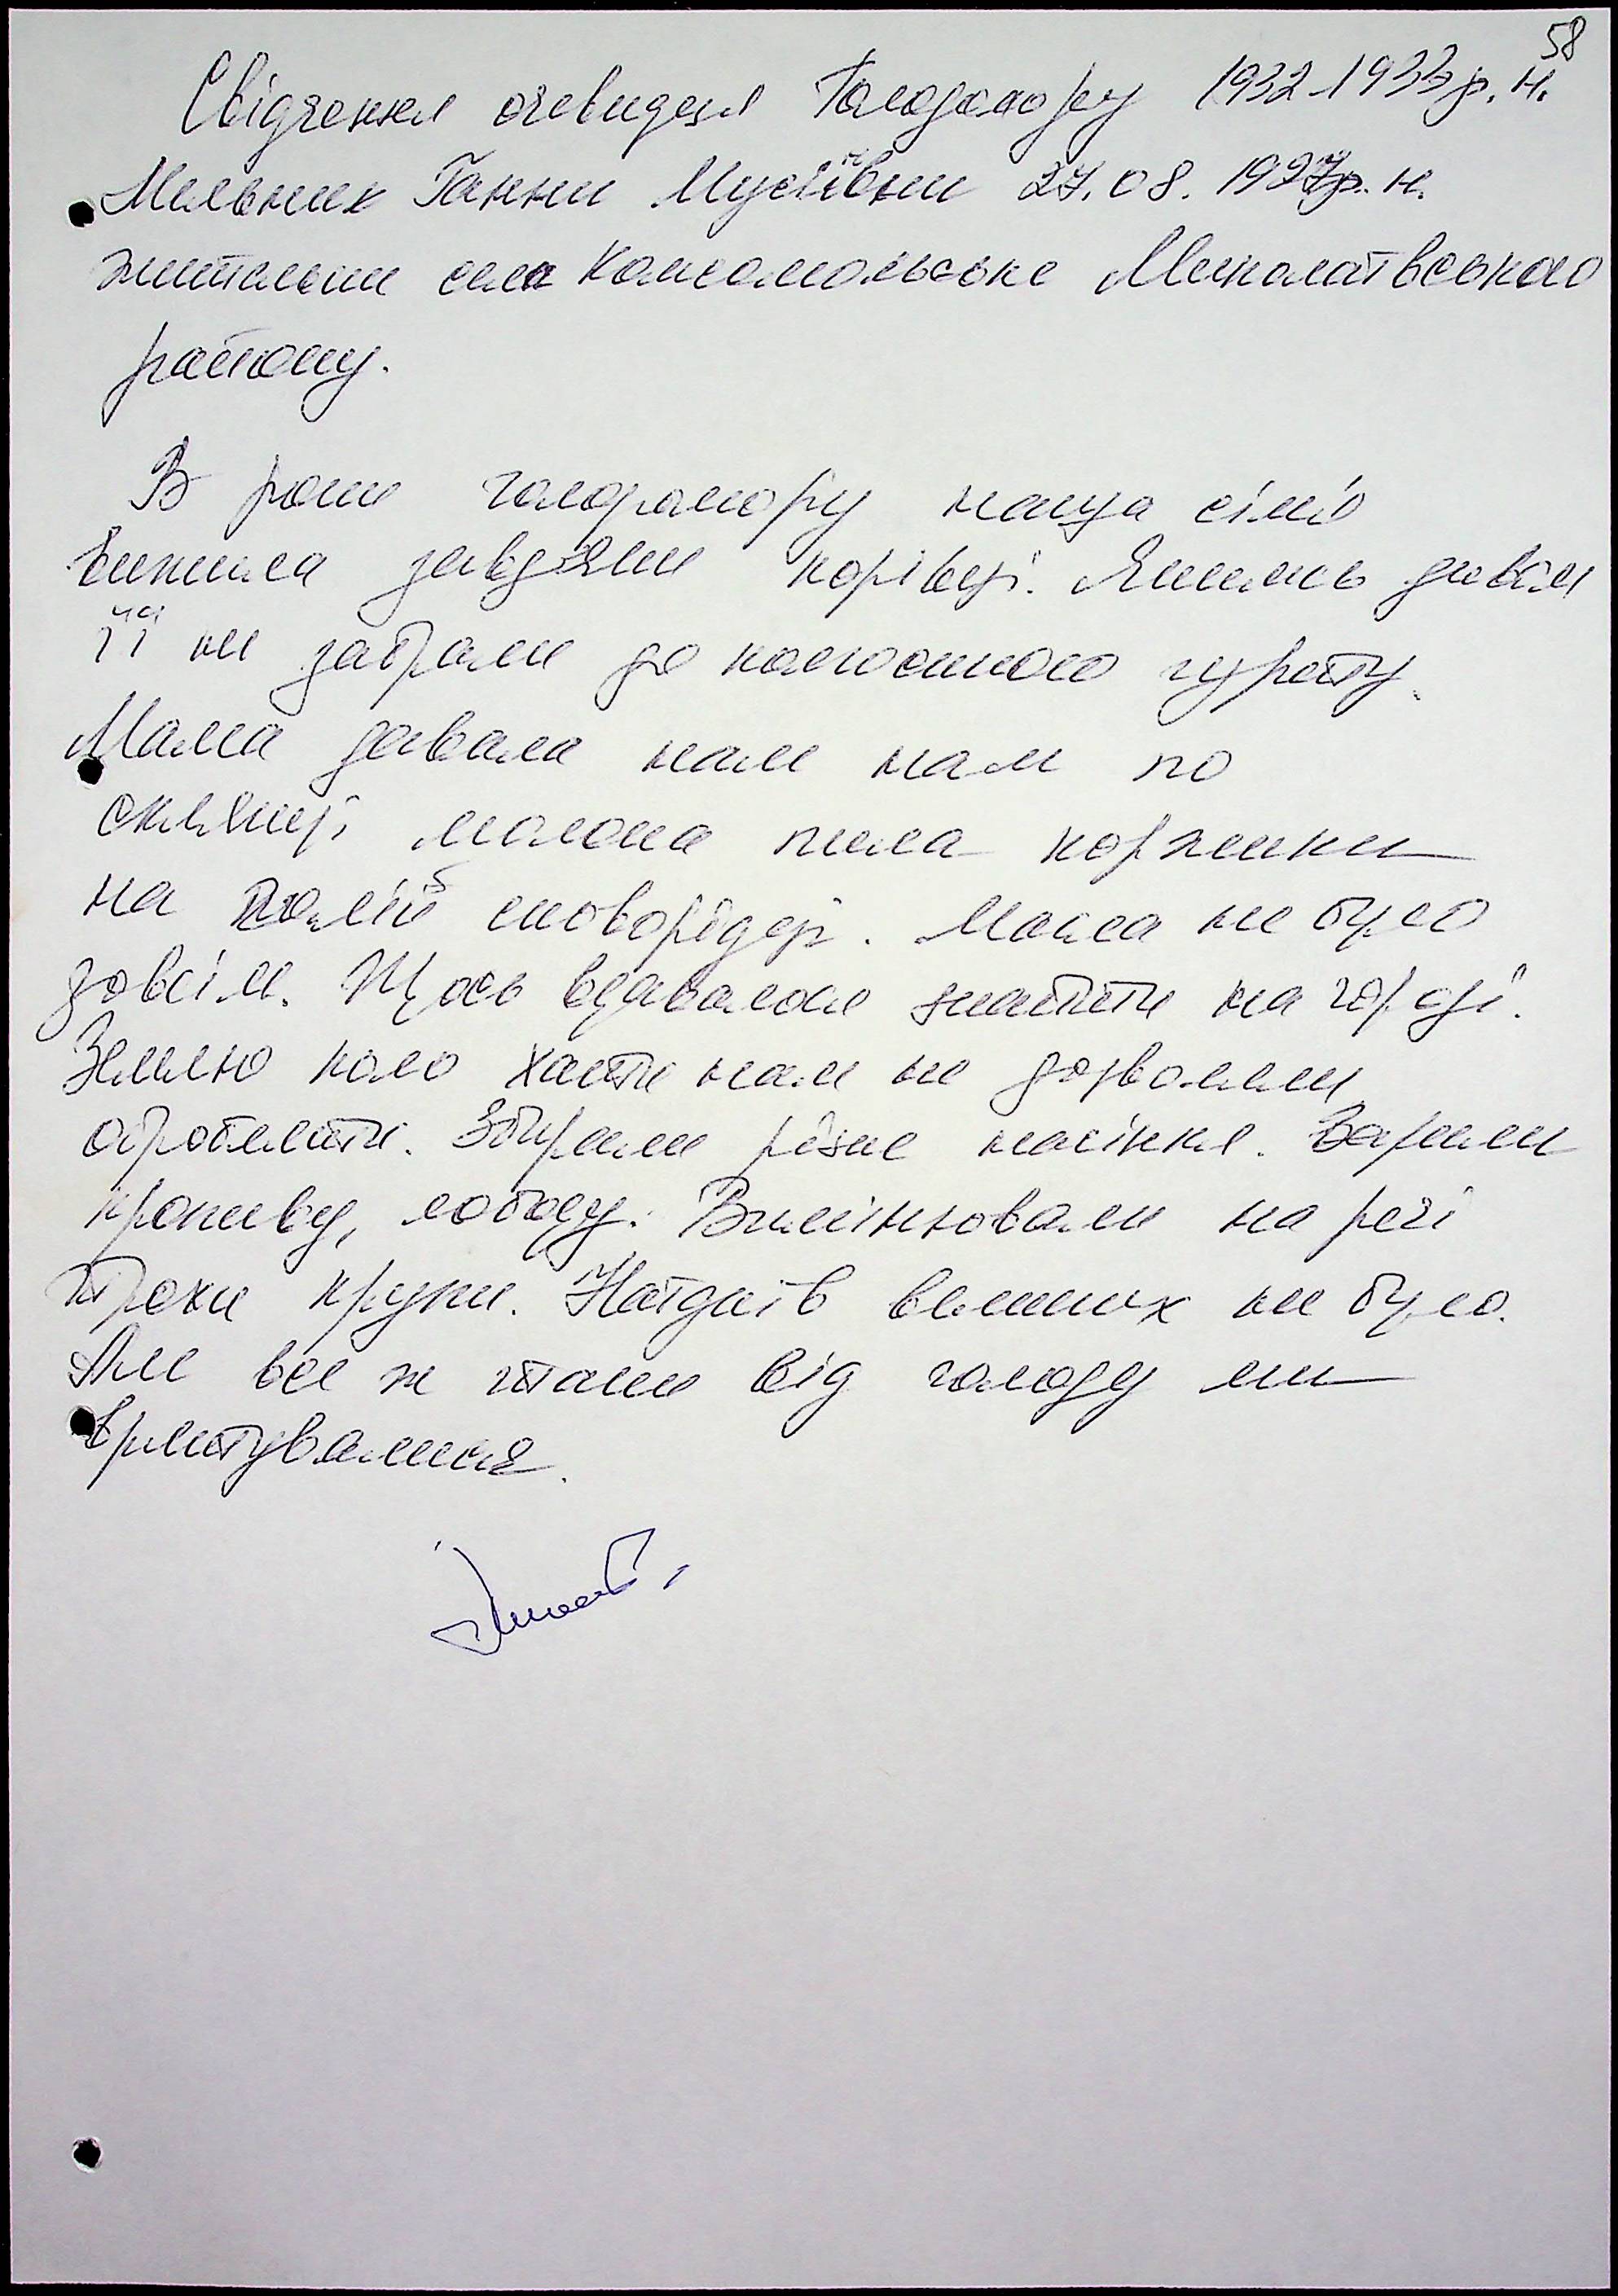 58
Свідчення очевидця Голодомору 1932-1933 р. н.
Мельник Ганни Мусіївни 27.08.1927р. н.
жительки села Комсомольське Миколаївського
району.
В роки голодомору наша сім'я
вижила завдяки корівці. Якимсь дивом
її не забрали до колгоспного гурту.
Мама давала нам нам по
склянці молока пекла коржики
на сковорідці. Масла не було
зовсім. Щось вдавалося знайти на городі.
Землю коло хати нам не дозволяли
обробляти. Збирали різне насіння. Варили
кропиву, лободу. Вимінювали на речі
трохи крупи. Наїдків великих не було.
Але все ж таки від голоду ми
врятувалися.